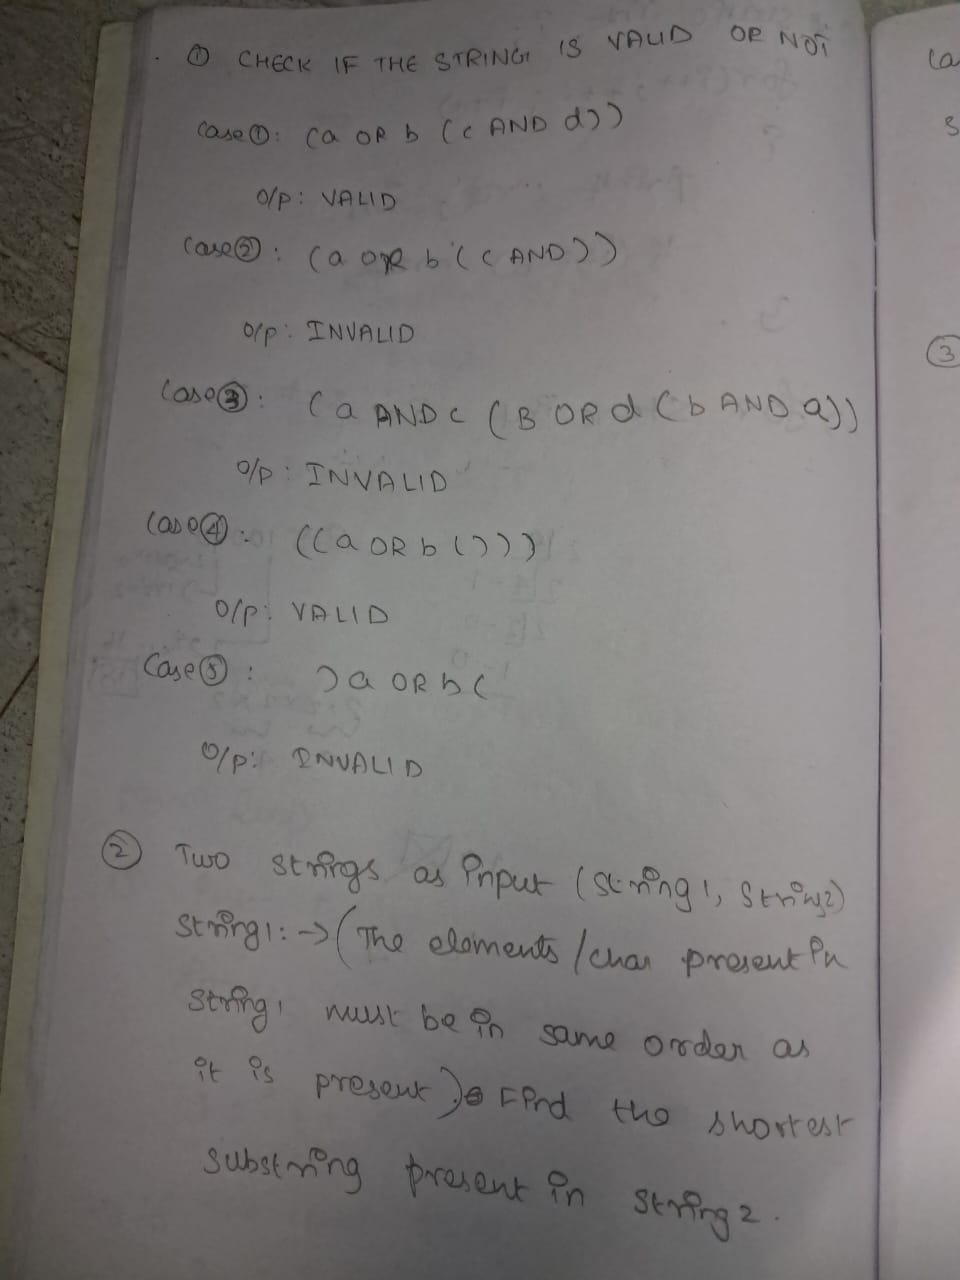 ① CHECK IF THE STRING IS VALID OR NOT
Case ①: (a OR b (c AND d))
O/P: VALID
Case ②: (a OR b (c AND))
O/P: INVALID
Case ③: (a AND c (B OR d (b AND a))
O/P: INVALID
Case ④: ((a OR b ()))
O/P: VALID
Case ⑤: )a OR b(
O/P: INVALID
② Two strings as input (string1, string2)
string1: -> (The elements/char present in
string1 must be in same order as
it is present). Find the shortest
substring present in string2.
Ca
S
③